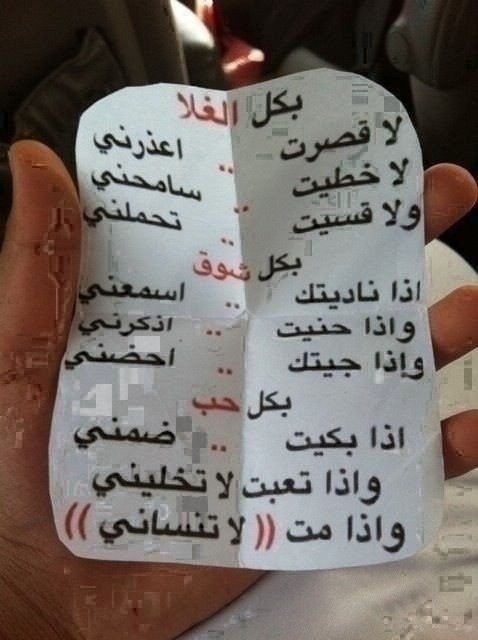 بكل الغلا
لا قصرت .. اعذرني
لا خطيت .. سامحني
ولا قسيت .. تحملني
بكل شوق
اذا ناديتك .. اسمعني
واذا حنيت .. اذكرني
وإذا جيتك .. احضني
بكل حب
اذا بكيت .. ضمني
واذا تعبت لا تخليني
واذا مت (( لا تنساني ))